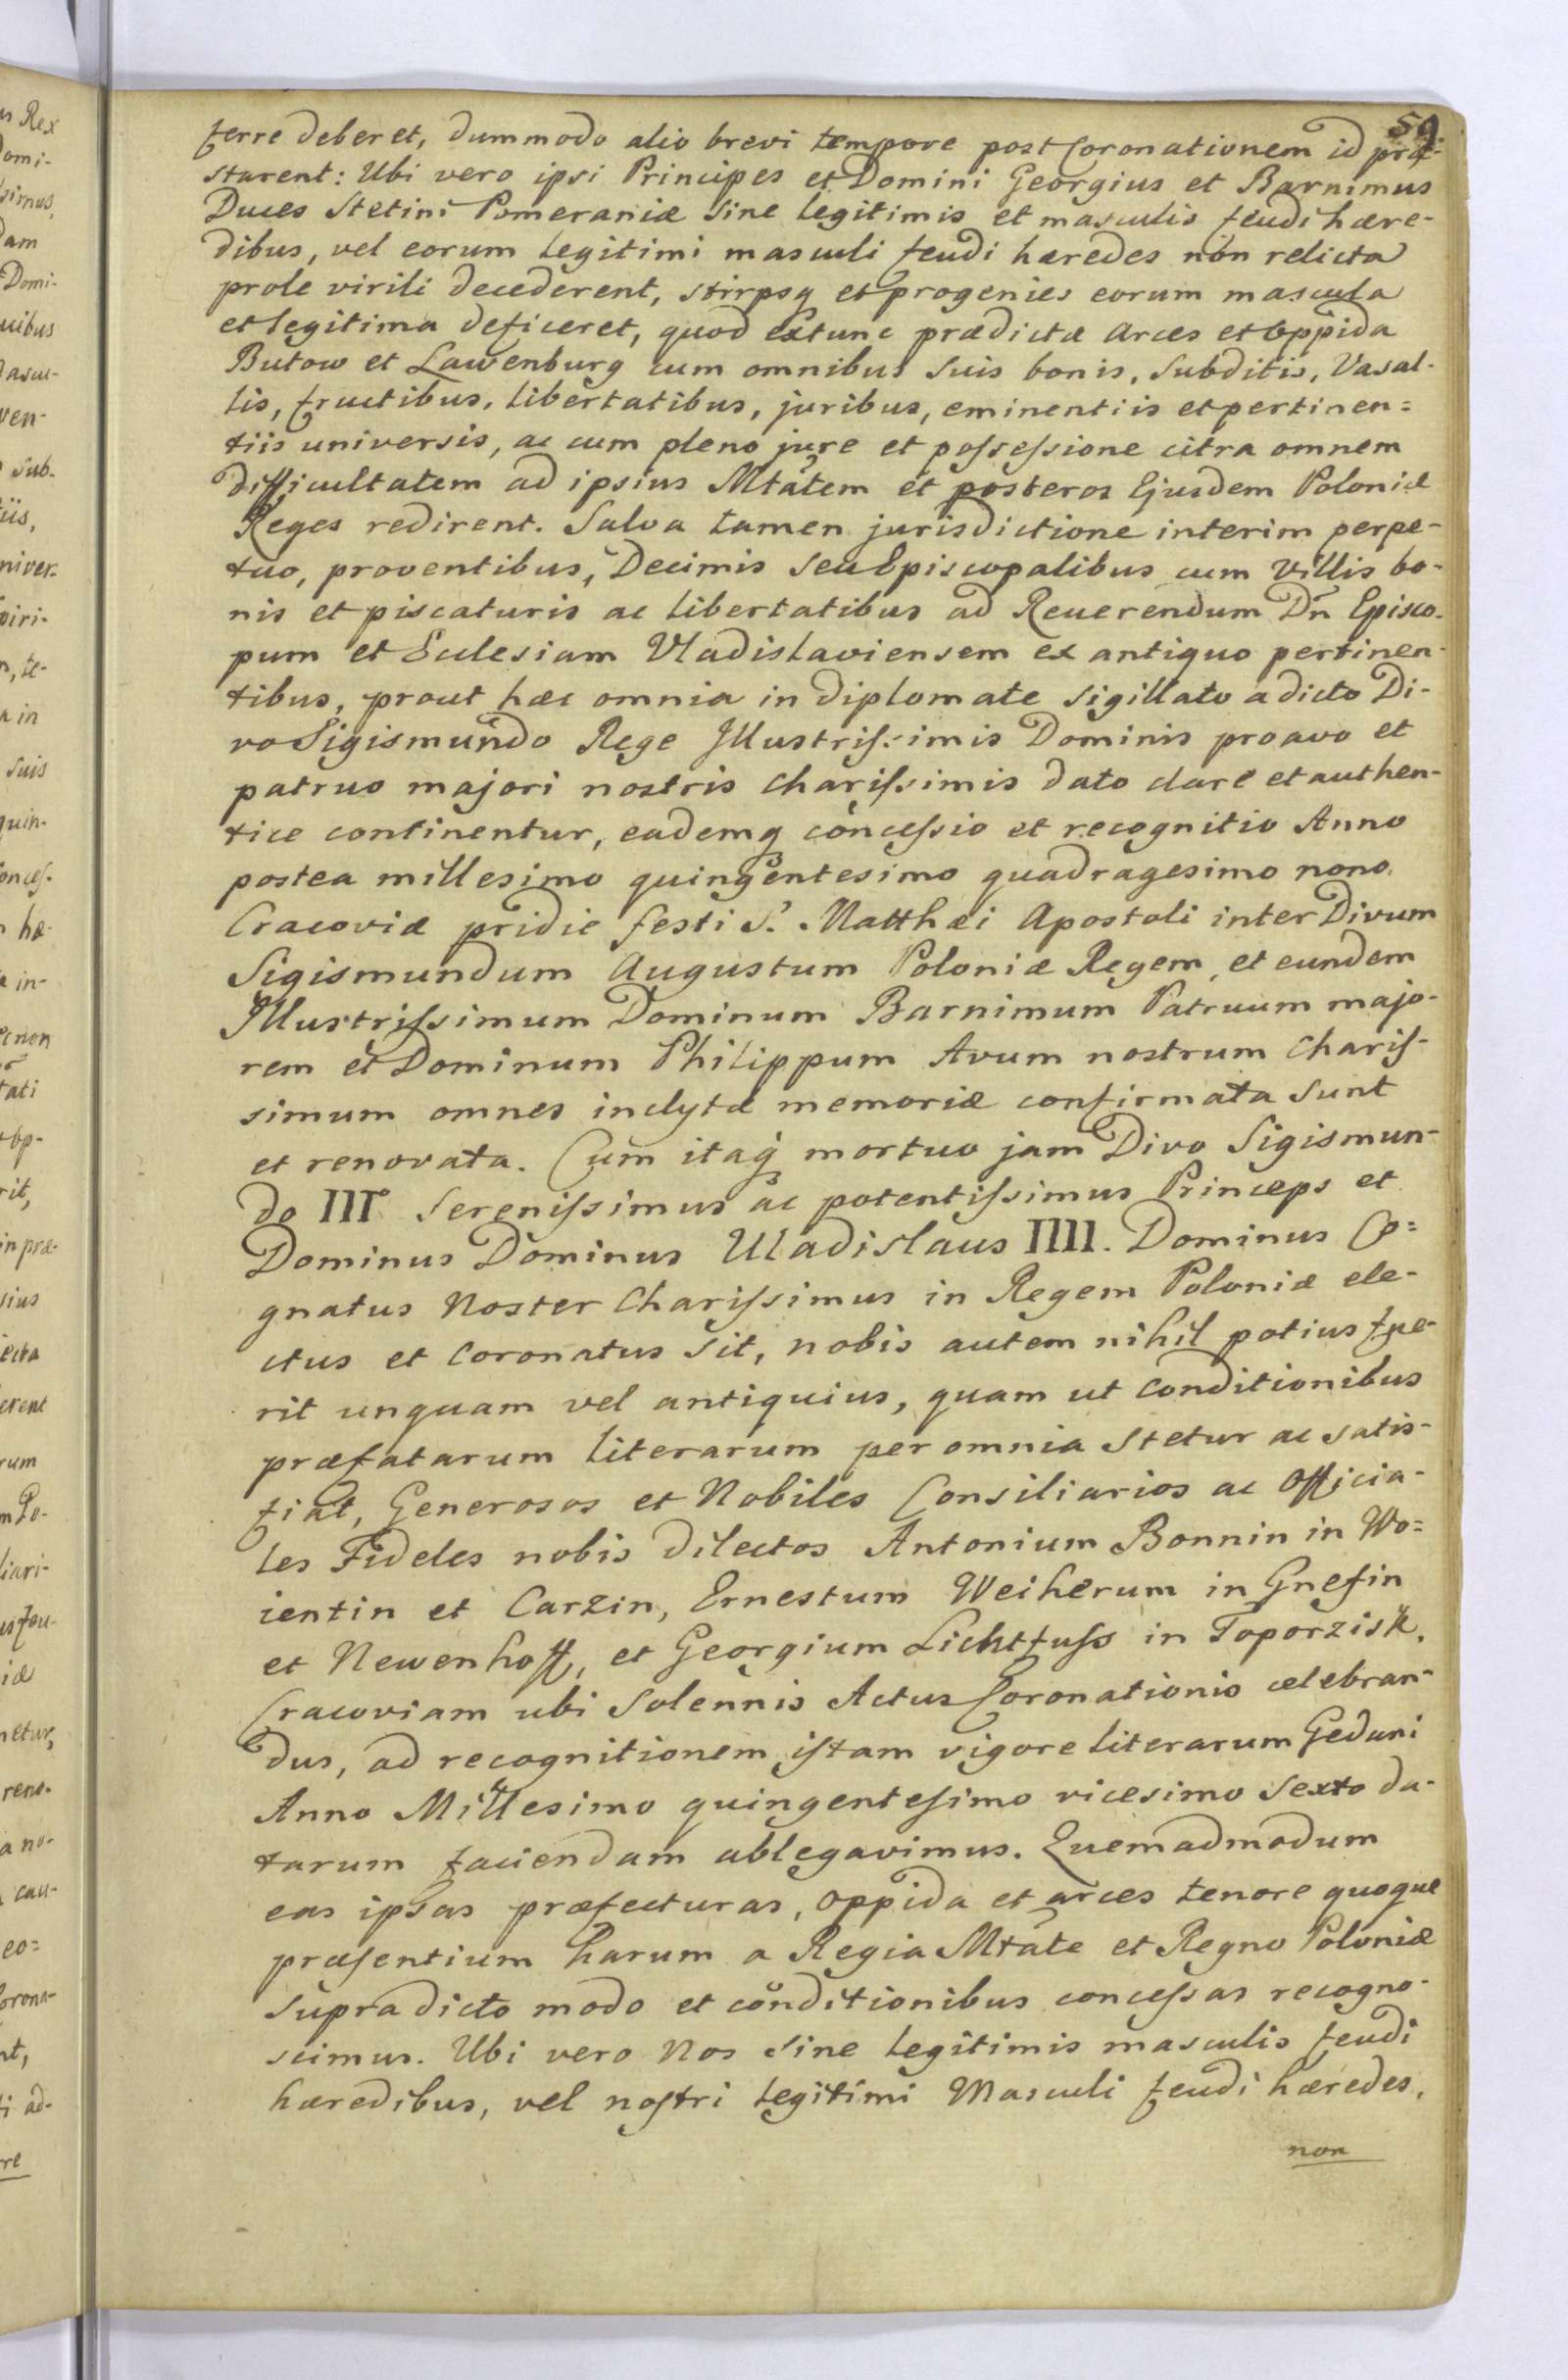 59
ferre deberet, dummodo alio brevi tempore post Coronationem id præ-
starent: Ubi vero ipsi Principes et Domini Georgius et Barnimus
Duces Stetini Pomeraniæ sine legitimis et masculis feudi hære-
dibus, vel eorum legitimi masculi feudi hæredes non relicta
prole virili decederent, stirpsq et progenies eorum mascula
et legitima deficeret, quod extunc prædictæ Arces et Oppida
Butow et Lawenburg cum omnibus suis bonis, subditis, Vasal-
lis, fructibus, libertatibus, juribus, eminentiis et pertinen=
tiis universis, ac cum pleno jure et possessione citra omnem
difficultatem ad ipsius Mtatem et posteros Ejusdem Poloniæ
Reges redirent. Salva tamen jurisdictione interim perpe-
tuo, proventibus, Decimis seu Episcopalibus cum Villis bo-
nis et piscaturis ac libertatibus ad Reuerendum Dn Episco-
pum et Ecclesiam Vladislaviensem ex antiquo pertinen-
tibus, prout hæc omnia in diplomate sigillato a dicto Di-
vo Sigismundo Rege Illustrissimis Dominis proavo et
patruo majori nostris charissimis dato clare et authen-
tice continentur, eademq concessio et recognitio Anno
postea millesimo quingentesimo quadragesimo nono
Cracoviæ pridie festi S. Matthæi Apostoli inter Divum
Sigismundum Augustum Poloniæ Regem, et eundem
Illustrissimum Dominum Barnimum Patruum majo-
rem et Dominum Philippum Avum nostrum charis-
simum omnes inclytæ memoriæ confirmata sunt
et renovata. Cum itaq mortuo jam Divo Sigismun-
do III Serenissimus ac potentissimus Princeps et
Dominus Dominus Uladislaus IIII. Dominus Co=
gnatus Noster Charissimus in Regem Poloniæ ele-
ctus et Coronatus sit, nobis autem nihil potius fue-
rit unquam vel antiquius, quam ut Conditionibus
præfatarum literarum per omnia stetur ac satis-
fiat, Generosos et Nobiles Consiliarios ac Officia-
les Fideles nobis dilectos Antonium Bonnin in Wo=
ientin et Carzin, Ernestum Weiherum in Gnesin
et Newenhoff, et Georgium Lichtfuss in Toporzisk,
Cracoviam ubi Solennis Actus Coronationis celebran-
dus, ad recognitionem istam vigore literarum Gedani
Anno Millesimo quingentesimo vicesimo sexto da-
tarum faciendam ablegavimus. Quemadmodum
eas ipsas præfecturas, oppida et arces tenore quoque
præsentium harum a Regia Mtate et Regno Poloniæ
supradicto modo et conditionibus concessas recogno-
scimus. Ubi vero Nos sine legitimis masculis feudi
hæredibus, vel nostri legitimi Masculi feudi hæredes,
non